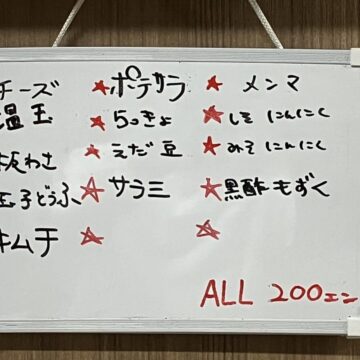 チーズ ★ ポテサラ ★ メンマ
温玉 ★ らっきょ ★ しそ にんにく
板わさ ★ えだ豆 ★ みそ にんにく
玉子どうふ ☆ サラミ ★ 黒酢もずく
キムチ ☆ ☆
ALL 200エン